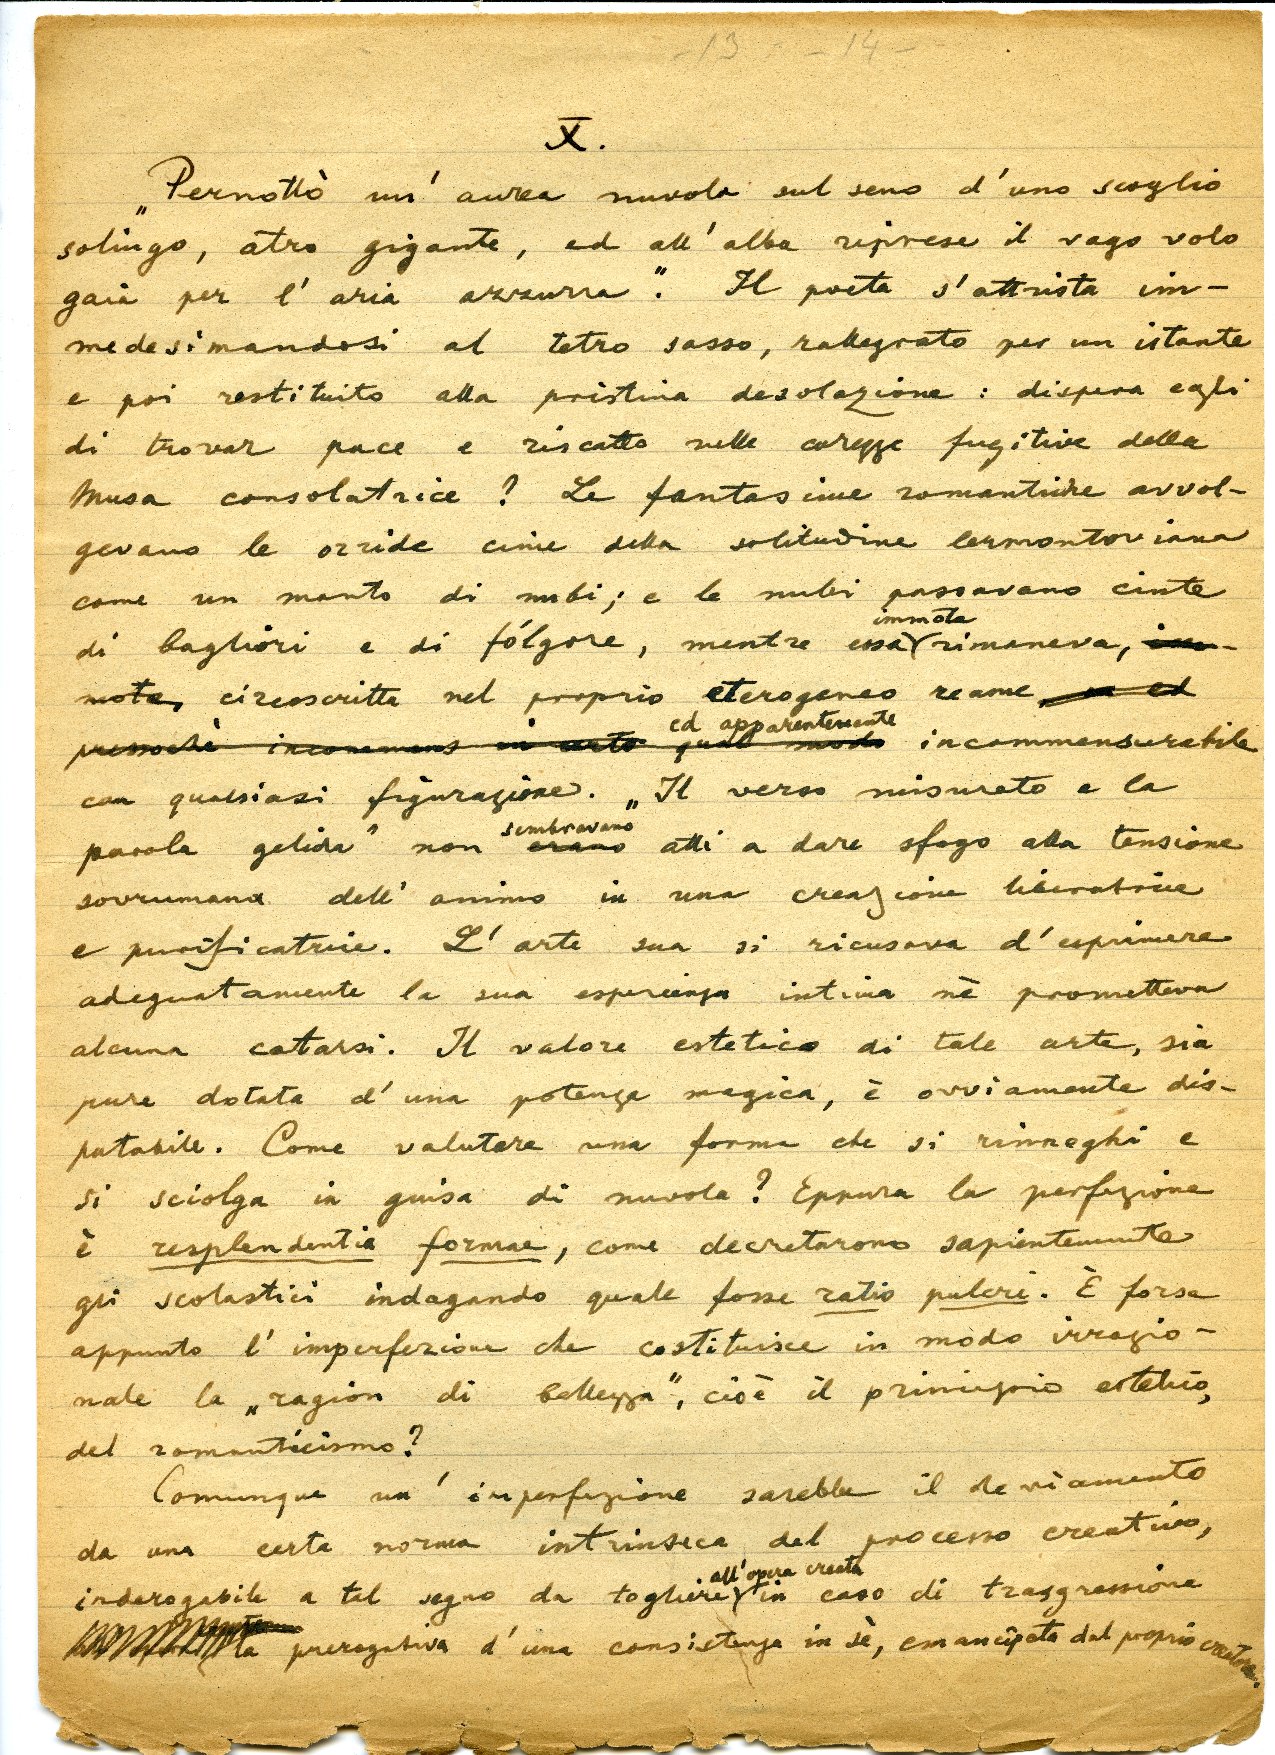 -13 - -14-
X.
„Pernottò un' aurea nuvola sul seno d'uno scoglio
solingo, atro gigante, ed all'alba riprese il vago volo
gaia per l'aria azzurra". Il poeta s'attrista im-
medesimandosi al tetro sasso, rallegrato per un istante
e poi restituito alla pristina desolazione: dispera egli
di trovar pace e riscatto nelle carezze fugitive della
Musa consolatrice? Le fantasime romantiche avvol-
gevano le orride cime della solitudine lermontoviana
come un manto di nubi; e le nubi passavano cinte
immota
di bagliori e di fólgore, mentre essa rimaneva, im-
mota, circoscritta nel proprio eterogeneo reame, ed
ed apparentemente
pressoché in certo qual modo incommensurabile
con qualsiasi figurazione. „Il verso misurato e la
sembravano
parola gelida" non erano atti a dare sfogo alla tensione
sovrumana dell'animo in una creazione liberatrice
e purificatrice. L'arte sua si ricusava d'esprimere
adeguatamente la sua esperienza intima nè prometteva
alcuna catarsi. Il valore estetico di tale arte, sia
pure dotata d'una potenza magica, è ovviamente dis-
putabile. Come valutare una forma che si rinneghi e
si sciolga in guisa di nuvola? Eppure la perfezione
è resplendentia formae, come decretarono sapientemente
gli scolastici indagando quale fosse ratio pulcri. È forse
appunto l'imperfezione che costituisce in modo irrazio-
nale la „ragion di bellezza", cioè il principio estetico,
del romanticismo?
Comunque un' imperfezione sarebbe il deviamento
da una certa norma intrinseca del processo creativo,
all'opera creata
inderogabile a tal segno da togliere in caso di trasgressione
la prerogativa d'una consistenza in sè, emancipata dal proprio creatore.